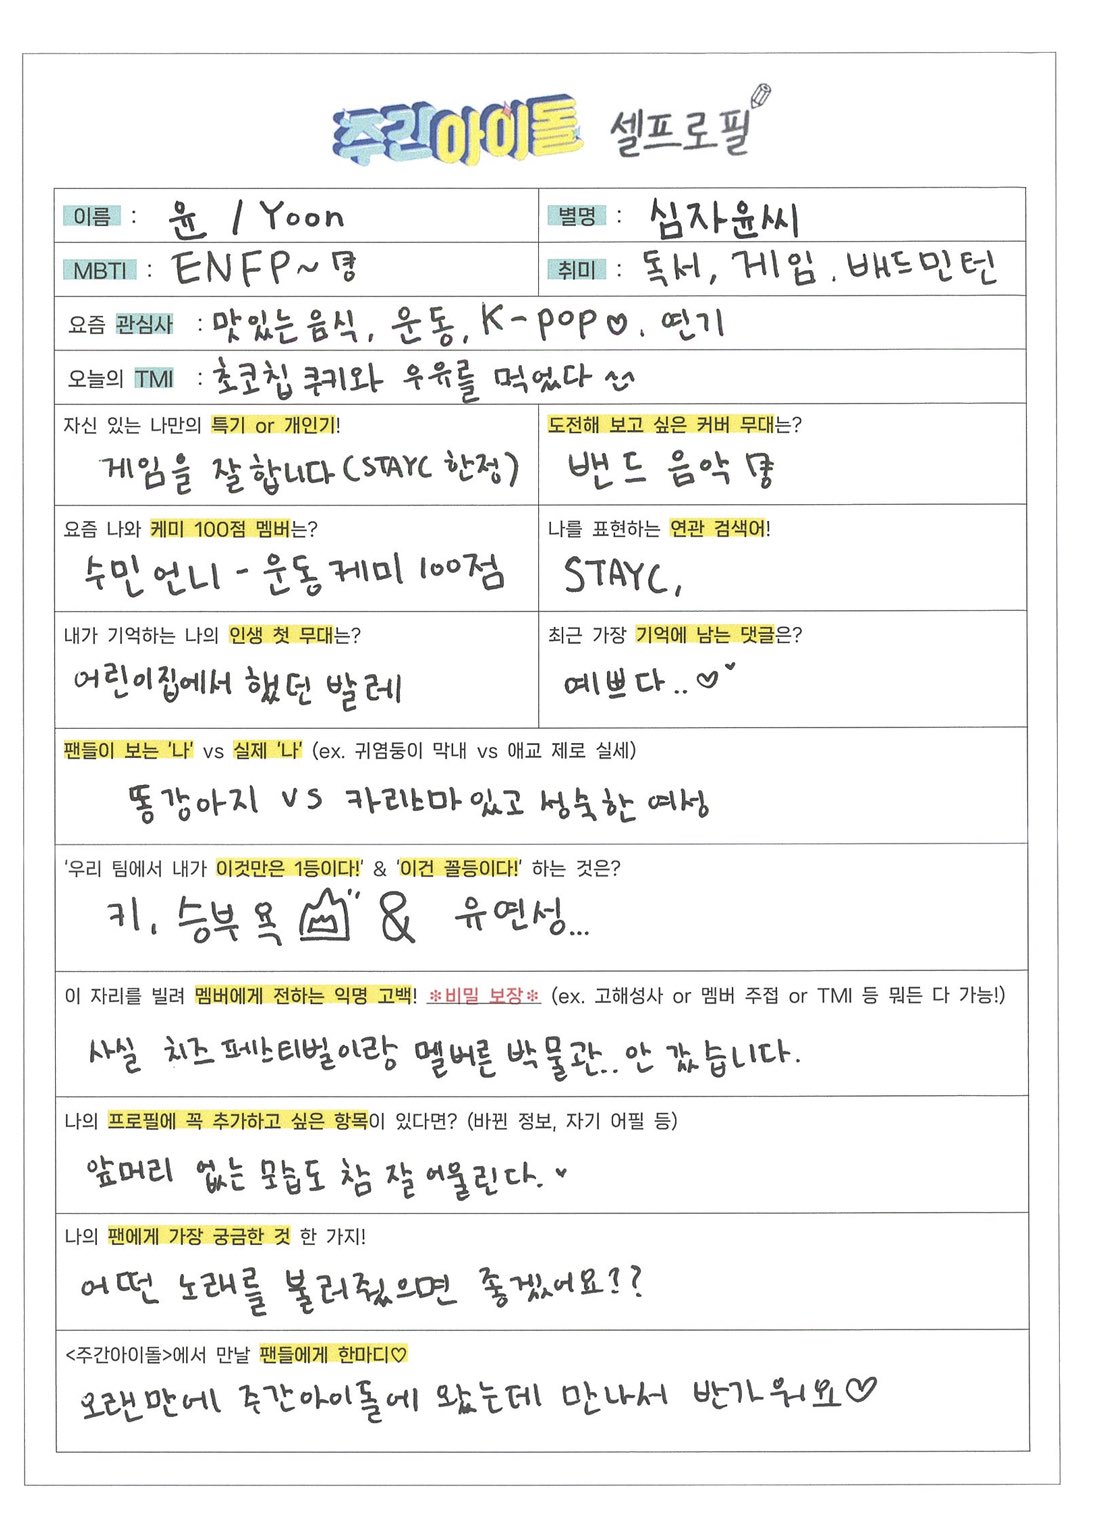 주간아이돌 셀프로필
이름 : 윤 / Yoon
별명 : 심자윤씨
MBTI : ENFP~
취미 : 독서, 게임. 배드민턴
요즘 관심사 : 맛있는 음식, 운동, K-pop♡. 연기
오늘의 TMI : 초코칩 쿠키와 우유를 먹었다
자신 있는 나만의 특기 or 개인기!
게임을 잘합니다 (STAYC 한정)
도전해 보고 싶은 커버 무대는?
밴드 음악
요즘 나와 케미 100점 멤버는?
수민언니 - 운동케미 100점
나를 표현하는 연관 검색어!
STAYC,
내가 기억하는 나의 인생 첫 무대는?
어린이집에서 했던 발레
최근 가장 기억에 남는 댓글은?
예쁘다..♡
팬들이 보는 '나' vs 실제 '나' (ex. 귀염둥이 막내 vs 애교 제로 실세)
똥강아지 VS 카리스마있고 성숙한 여성
'우리 팀에서 내가 이것만은 1등이다!' & '이건 꼴등이다!' 하는 것은?
키, 승부욕 & 유연성...
이 자리를 빌려 멤버에게 전하는 익명 고백! ※비밀 보장※ (ex. 고해성사 or 멤버 주접 or TMI 등 뭐든 다 가능!)
사실 치즈페스티벌이랑 멜버른 박물관.. 안 갔습니다.
나의 프로필에 꼭 추가하고 싶은 항목이 있다면? (바뀐 정보, 자기 어필 등)
앞머리 없는 모습도 참 잘 어울린다.♥
나의 팬에게 가장 궁금한 것 한 가지!
어떤 노래를 불러줬으면 좋겠어요??
<주간아이돌>에서 만날 팬들에게 한마디♡
오랜만에 주간아이돌에 왔는데 만나서 반가워요♡